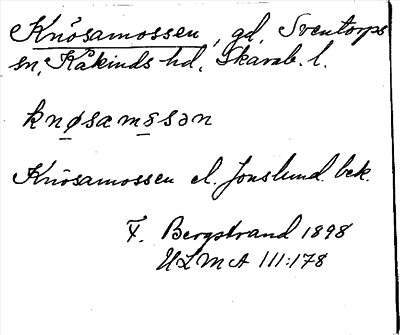 Knösamossen, gd, Sventorps
sn, Kåkinds hd, Skarab. l.
knøsamsən
Knösamossen el. Jonslund. bek.
F. Bergstrand 1898
ULMA 111:178